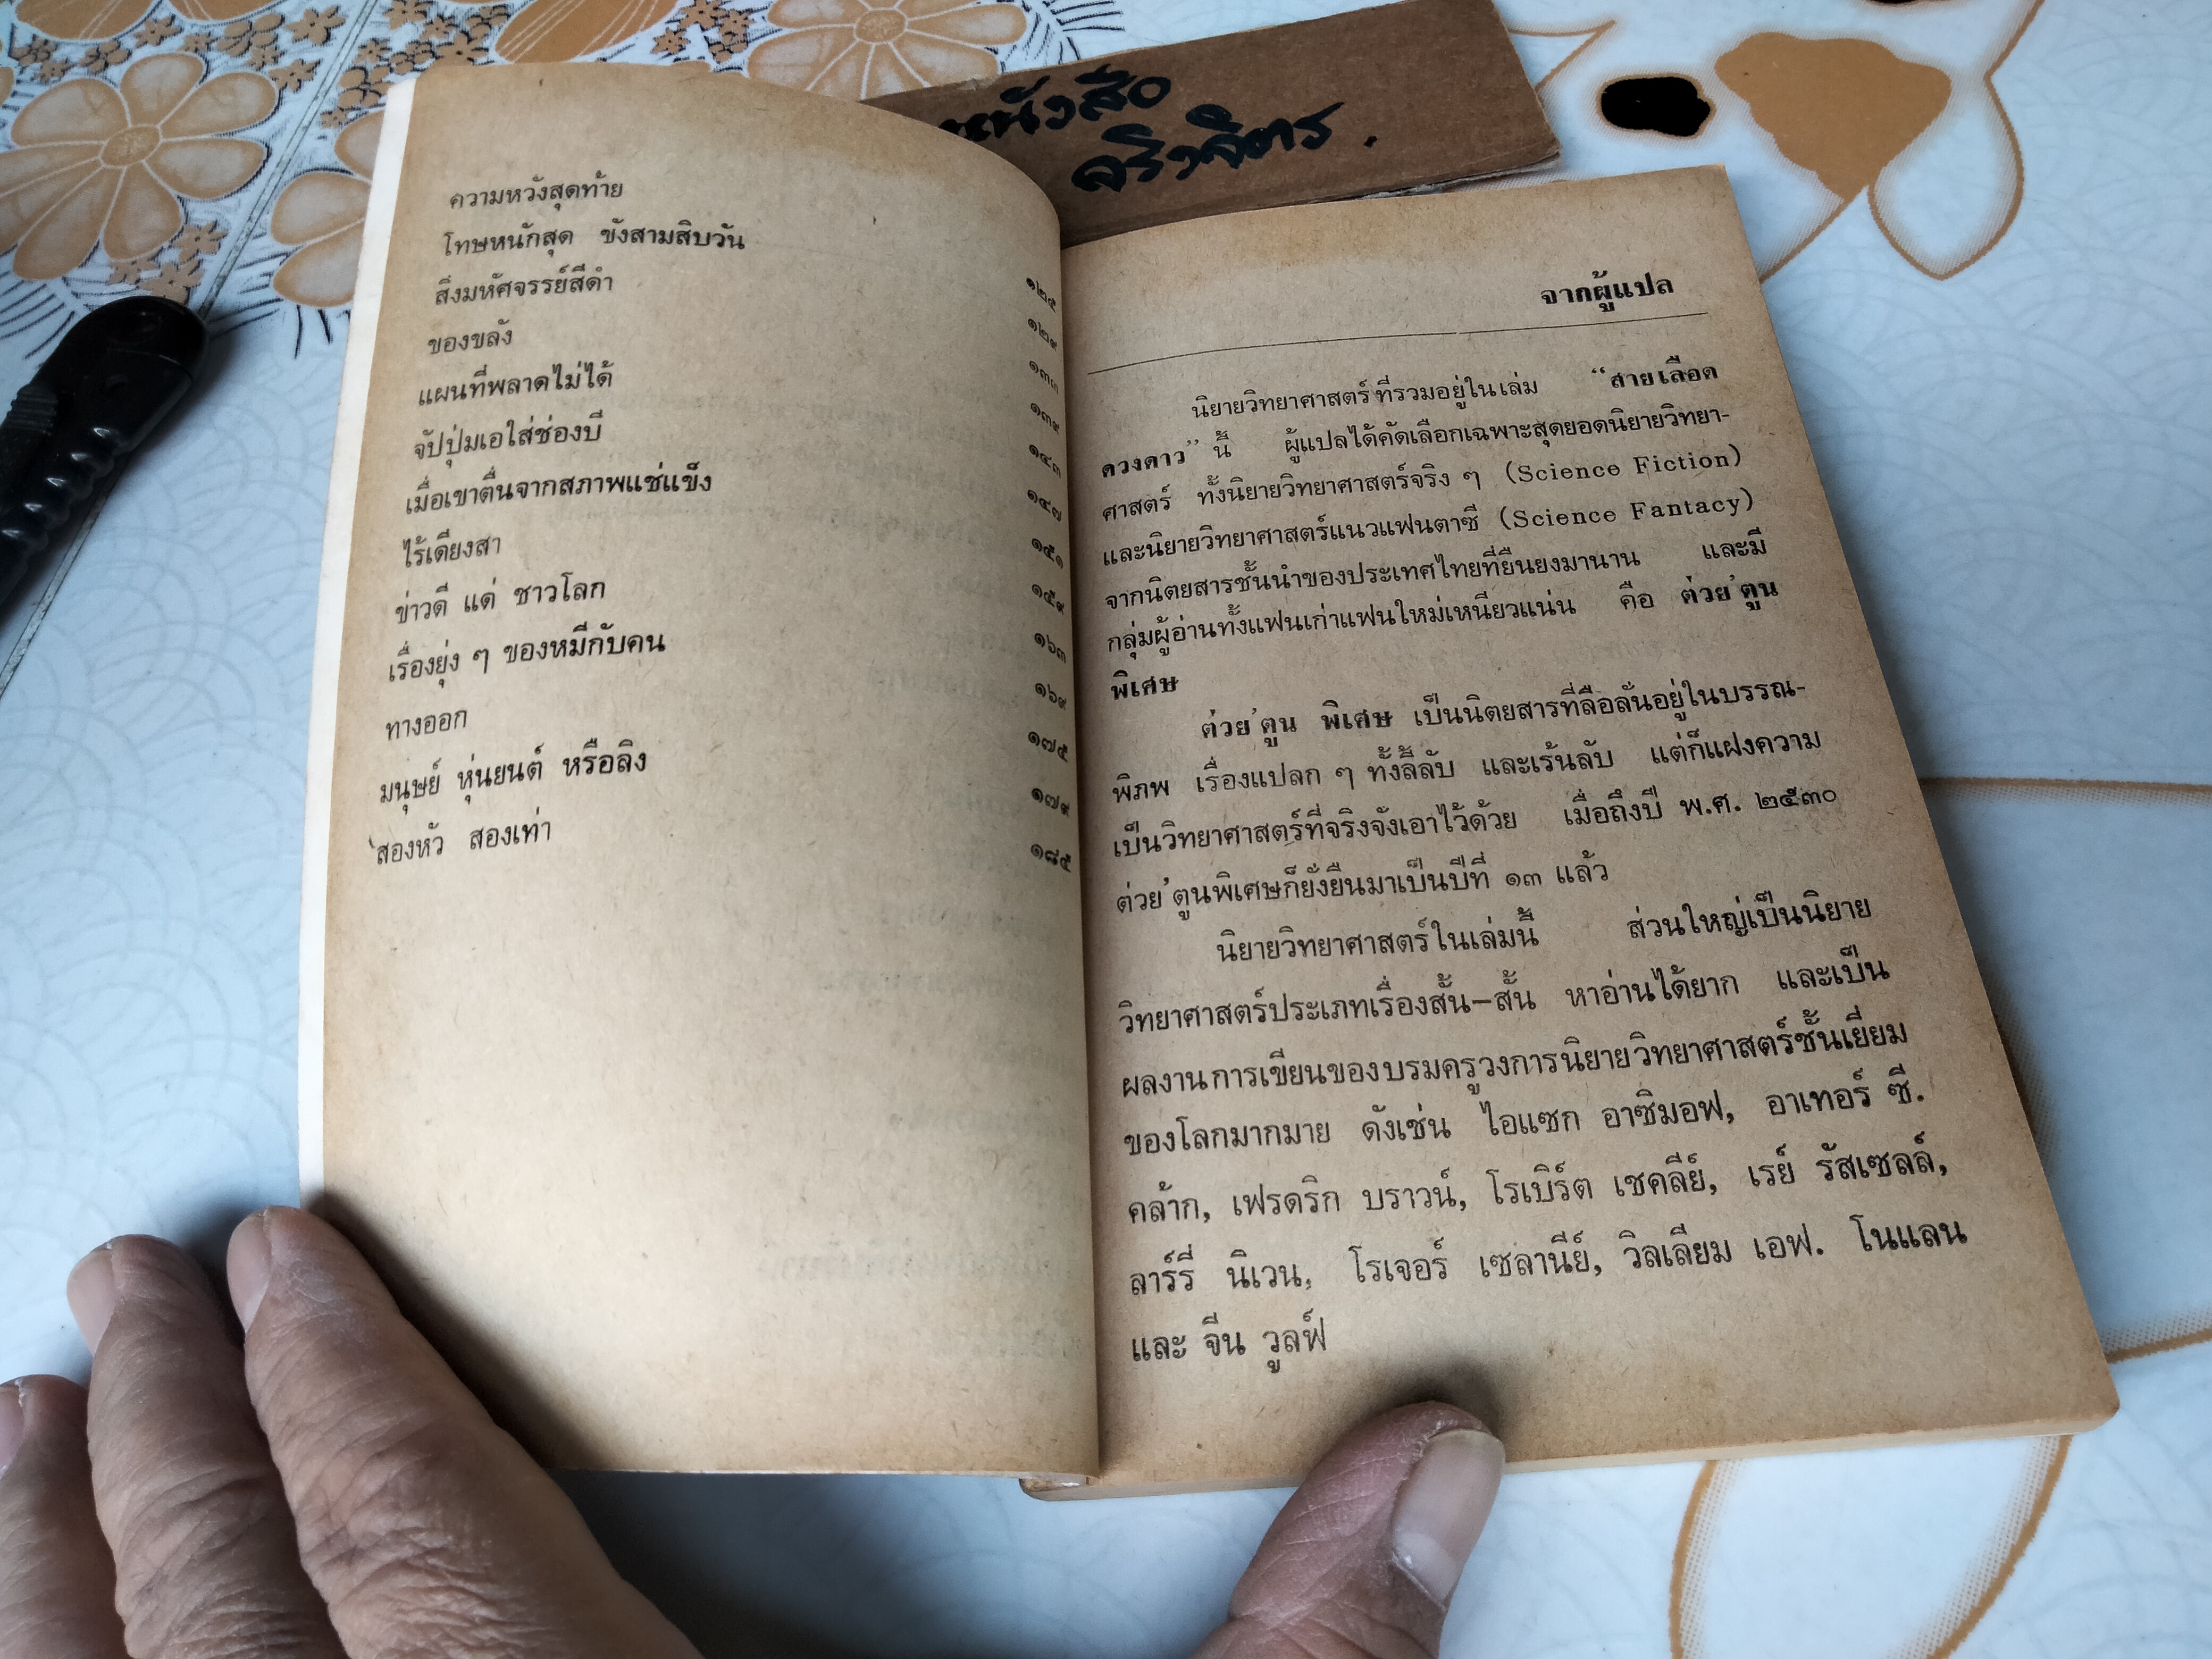 หนังสือ
จริงจิตร.
ความหวังสุดท้าย ๑๒๕
โทษหนักสุด ขังสามสิบวัน ๑๒๙
สิ่งมหัศจรรย์สีดำ ๑๓๓
ของขลัง ๑๓๙
แผนที่พลาดไม่ได้ ๑๔๓
จับปุ่มเอใส่ช่องบี ๑๔๗
เมื่อเขาตื่นจากสภาพแช่แข็ง ๑๕๑
ไร้เดียงสา ๑๕๙
ข่าวดี แด่ ชาวโลก ๑๖๓
เรื่องยุ่ง ๆ ของหมีกับคน ๑๖๙
ทางออก ๑๗๕
มนุษย์ หุ่นยนต์ หรือลิง ๑๗๙
สองหัว สองเท่า ๑๘๕
จากผู้แปล
นิยายวิทยาศาสตร์ที่รวมอยู่ในเล่ม “สายเลือด
ดวงดาว” นี้ ผู้แปลได้คัดเลือกเฉพาะสุดยอดนิยายวิทยา-
ศาสตร์ ทั้งนิยายวิทยาศาสตร์จริง ๆ (Science Fiction)
และนิยายวิทยาศาสตร์แนวแฟนตาซี (Science Fantacy)
จากนิตยสารชั้นนำของประเทศไทยที่ยืนยงมานาน และมี
กลุ่มผู้อ่านทั้งแฟนเก่าแฟนใหม่เหนียวแน่น คือ ต่วย'ตูน
พิเศษ
ต่วย'ตูน พิเศษ เป็นนิตยสารที่ลือลั่นอยู่ในบรรณ-
พิภพ เรื่องแปลก ๆ ทั้งลี้ลับ และเร้นลับ แต่ก็แฝงความ
เป็นวิทยาศาสตร์ที่จริงจังเอาไว้ด้วย เมื่อถึงปี พ.ศ. ๒๕๓๐
ต่วย'ตูนพิเศษก็ยั่งยืนมาเป็นปีที่ ๑๓ แล้ว
นิยายวิทยาศาสตร์ในเล่มนี้ ส่วนใหญ่เป็นนิยาย
วิทยาศาสตร์ประเภทเรื่องสั้น–สั้น หาอ่านได้ยาก และเป็น
ผลงานการเขียนของบรมครูวงการนิยายวิทยาศาสตร์ชั้นเยี่ยม
ของโลกมากมาย ดังเช่น ไอแซก อาซิมอฟ, อาเทอร์ ซี.
คล้าก, เฟรดริก บราวน์, โรเบิร์ต เชคลีย์, เรย์ รัสเซลล์,
ลาร์รี่ นิเวน, โรเจอร์ เซลานีย์, วิลเลียม เอฟ. โนแลน
และ จีน วูลฟ์